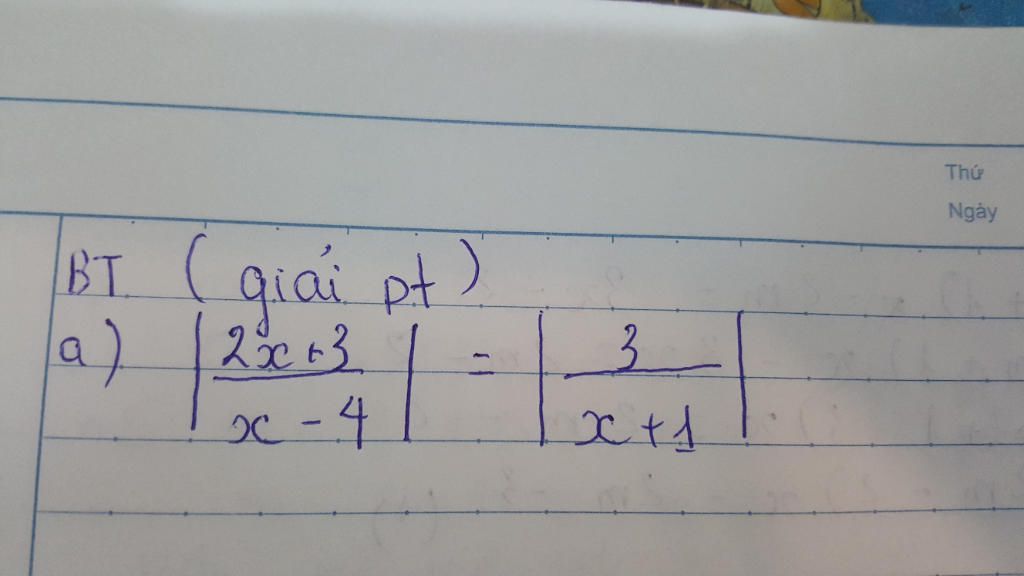 Thứ
Ngày
BT ( giải pt )
a) |2x+3 / x-4| = |3 / x+1|